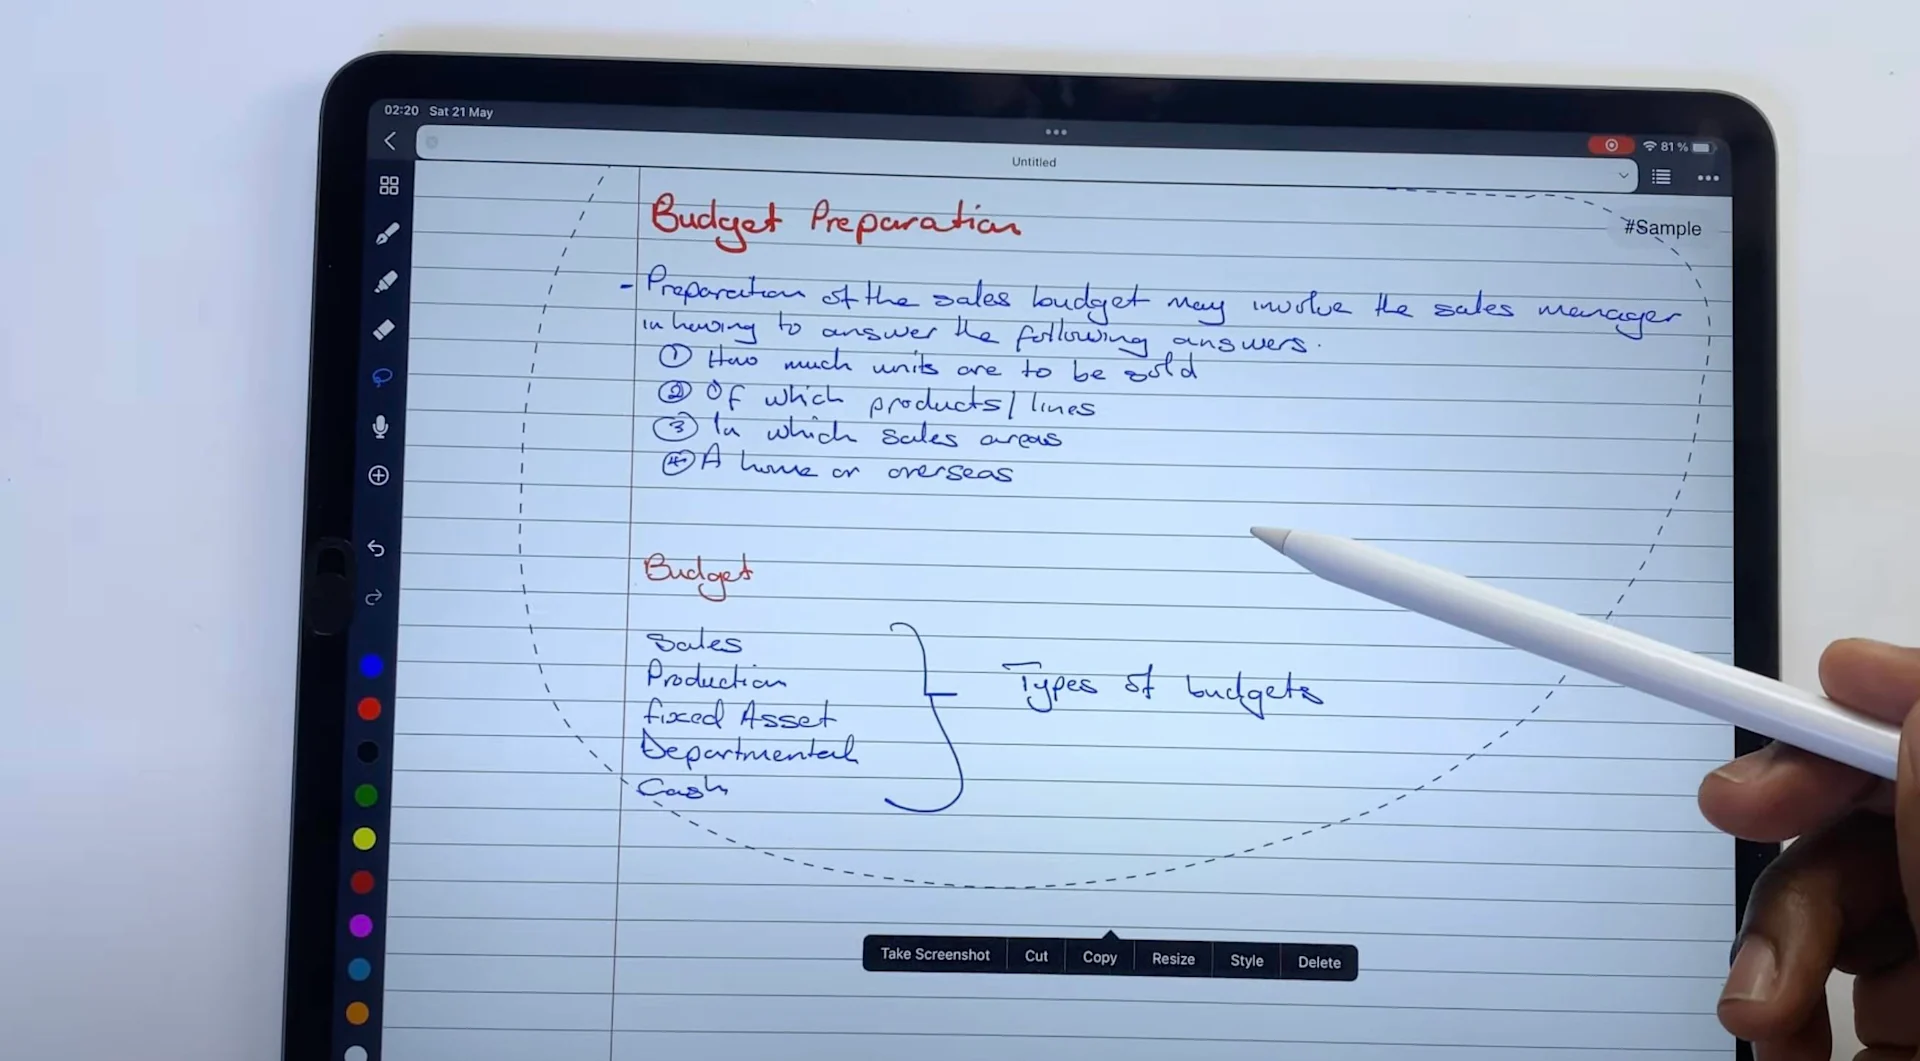 02:20 Sat 21 May
81 %
Untitled
#Sample
Budget Preparation
- Preparation of the sales budget may involve the sales manager
in having to answer the following answers.
① How much units are to be sold
② Of which products/lines
③ In which sales areas
④ A home or overseas
Budget
Sales
Production
fixed Asset
Departmental
Cash
Types of budgets
Take Screenshot Cut Copy Resize Style Delete